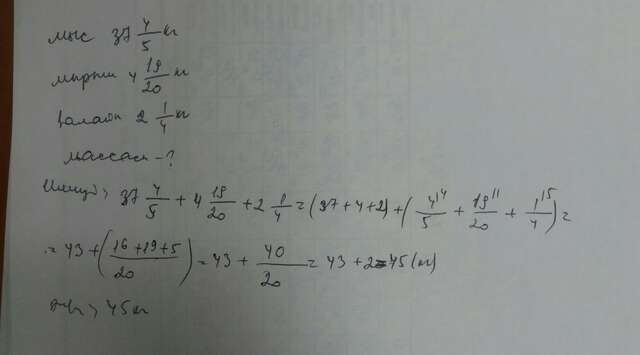 мыс 37 4/5 кг
мырыш 4 19/20 кг
қалайы 2 1/4 кг
массасы - ?
Шешуі: 37 4/5 + 4 19/20 + 2 1/4 = (37+4+2) + (4/5 + 19/20 + 1/4) =
= 43 + (16+19+5/20) = 43 + 40/20 = 43 + 2 = 45 (кг)
45 кг